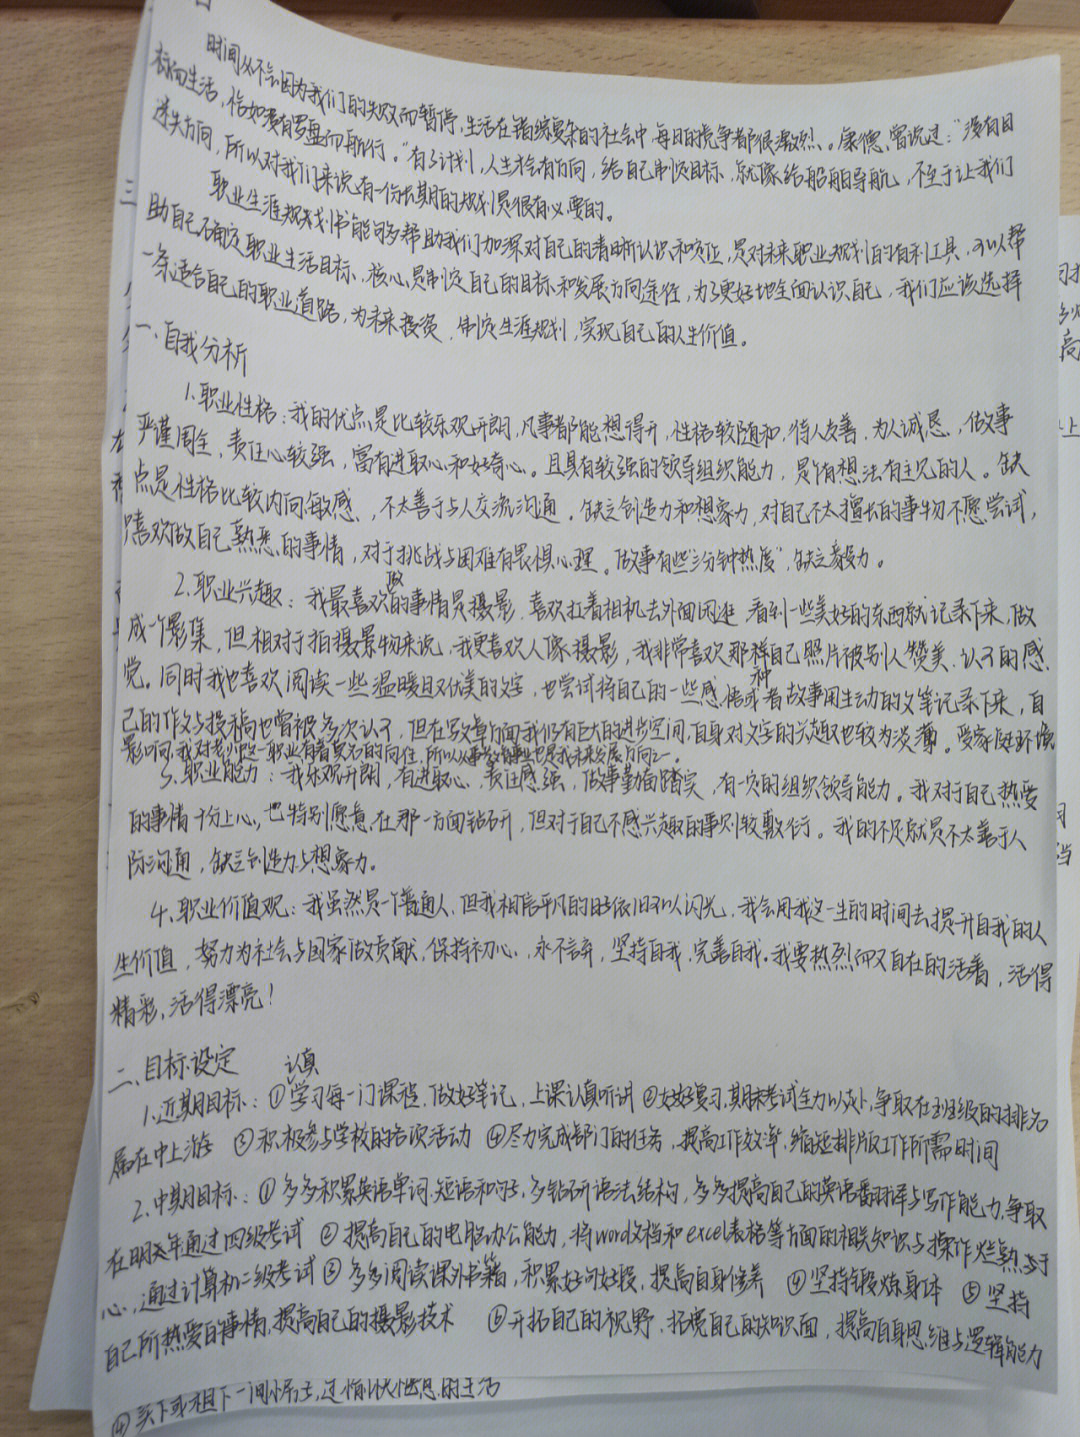 时间从不会因为我们的失败而暂停,生活在错综复杂的社会中,每日的竞争都很激烈。康德曾说过:"没有目
标而生活,恰如没有罗盘而航行。"有了计划,人生才会有方向,给自己制定目标,就像给船舶导航,不至于让我们
迷失方向,所以对我们来说,有一份长期的规划是很有必要的。
职业生涯规划书能够帮助我们加深对自己的清晰认识和定位,是对未来职业规划的有利工具,可以帮
助自己确定职业生活目标,核心是制定自己的目标和发展方向途径,为了更好地全面认识自己,我们应该选择
一条适合自己的职业道路,为未来投资,制定生涯规划,实现自己的人生价值。
一、自我分析
1.职业性格:我的优点是比较乐观开朗,凡事都能想得开,性格较随和,待人友善,为人诚恳,做事
严谨周全,责任心较强,富有进取心和好奇心。且具有较强的领导组织能力,是个有想法有主见的人。缺
点是性格比较内向敏感,不太善于与人交流沟通。缺乏创造力和想象力,对自己不太擅长的事物不愿尝试,
只喜欢做自己熟悉的事情,对于挑战与困难有畏惧心理。做事有些"三分钟热度",缺乏毅力。
2.职业兴趣:我最喜欢做的事情是摄影,喜欢扛着相机去外面闲逛,看到一些美好的东西就记录下来,做
成一个影集,但相对于拍摄景物来说,我更喜欢人像摄影,我非常喜欢那种自己照片被别人赞美、认可的感
觉。同时我也喜欢阅读一些温暖且又优美的文字,也尝试将自己的一些感悟或者故事用生动的文笔记录下来,自
己的作文与投稿也曾被多次认可,但在写文章方面我仍有巨大的进步空间,自身对文字的兴趣也较为淡薄。受家庭环境
影响,我对老师这一职业有着莫名的向往,所以从事教育事业也是我未来发展方向之一。
3.职业能力:我乐观开朗,有进取心,责任感强,做事勤奋踏实,有一定的组织领导能力。我对于自己热爱
的事情十份上心,也特别愿意在那一方面钻研,但对于自己不感兴趣的事则较敷衍。我的不足就是不太善于人
际沟通,缺乏创造力与想象力。
4.职业价值观:我虽然是一个普通人,但我相信平凡的日子依旧可以闪光,我会用我这一生的时间去提升自我的人
生价值,努力为社会与国家做贡献,保持初心,永不言弃,坚持自我,完善自我。我要热烈而又自在的活着,活得
精彩,活得漂亮!
二、目标设定
1.近期目标:①认真学习每一门课程,做好笔记,上课认真听讲 ②好好复习,期末考试全力以赴,争取在班级的排名
居在中上游 ③积极参与学校的各项活动 ④尽力完成部门的任务,提高工作效率,缩短排版工作所需时间
2.中期目标:①多多积累英语单词、短语和句子,多钻研语法结构,多多提高自己的英语翻译与写作能力,争取
在明年通过四级考试 ②提高自己的电脑办公能力,将word文档和excel表格等方面的相关知识与操作烂熟于
心,通过计算机二级考试 ③多多阅读课外书籍,积累好词好段,提高自身修养 ④坚持锻炼身体 ⑤坚持
自己所热爱的事情,提高自己的摄影技术 ⑥开拓自己的视野,拓宽自己的知识面,提高自身思维与逻辑能力
④买下或租下一间小屋子,过愉快惬意的生活